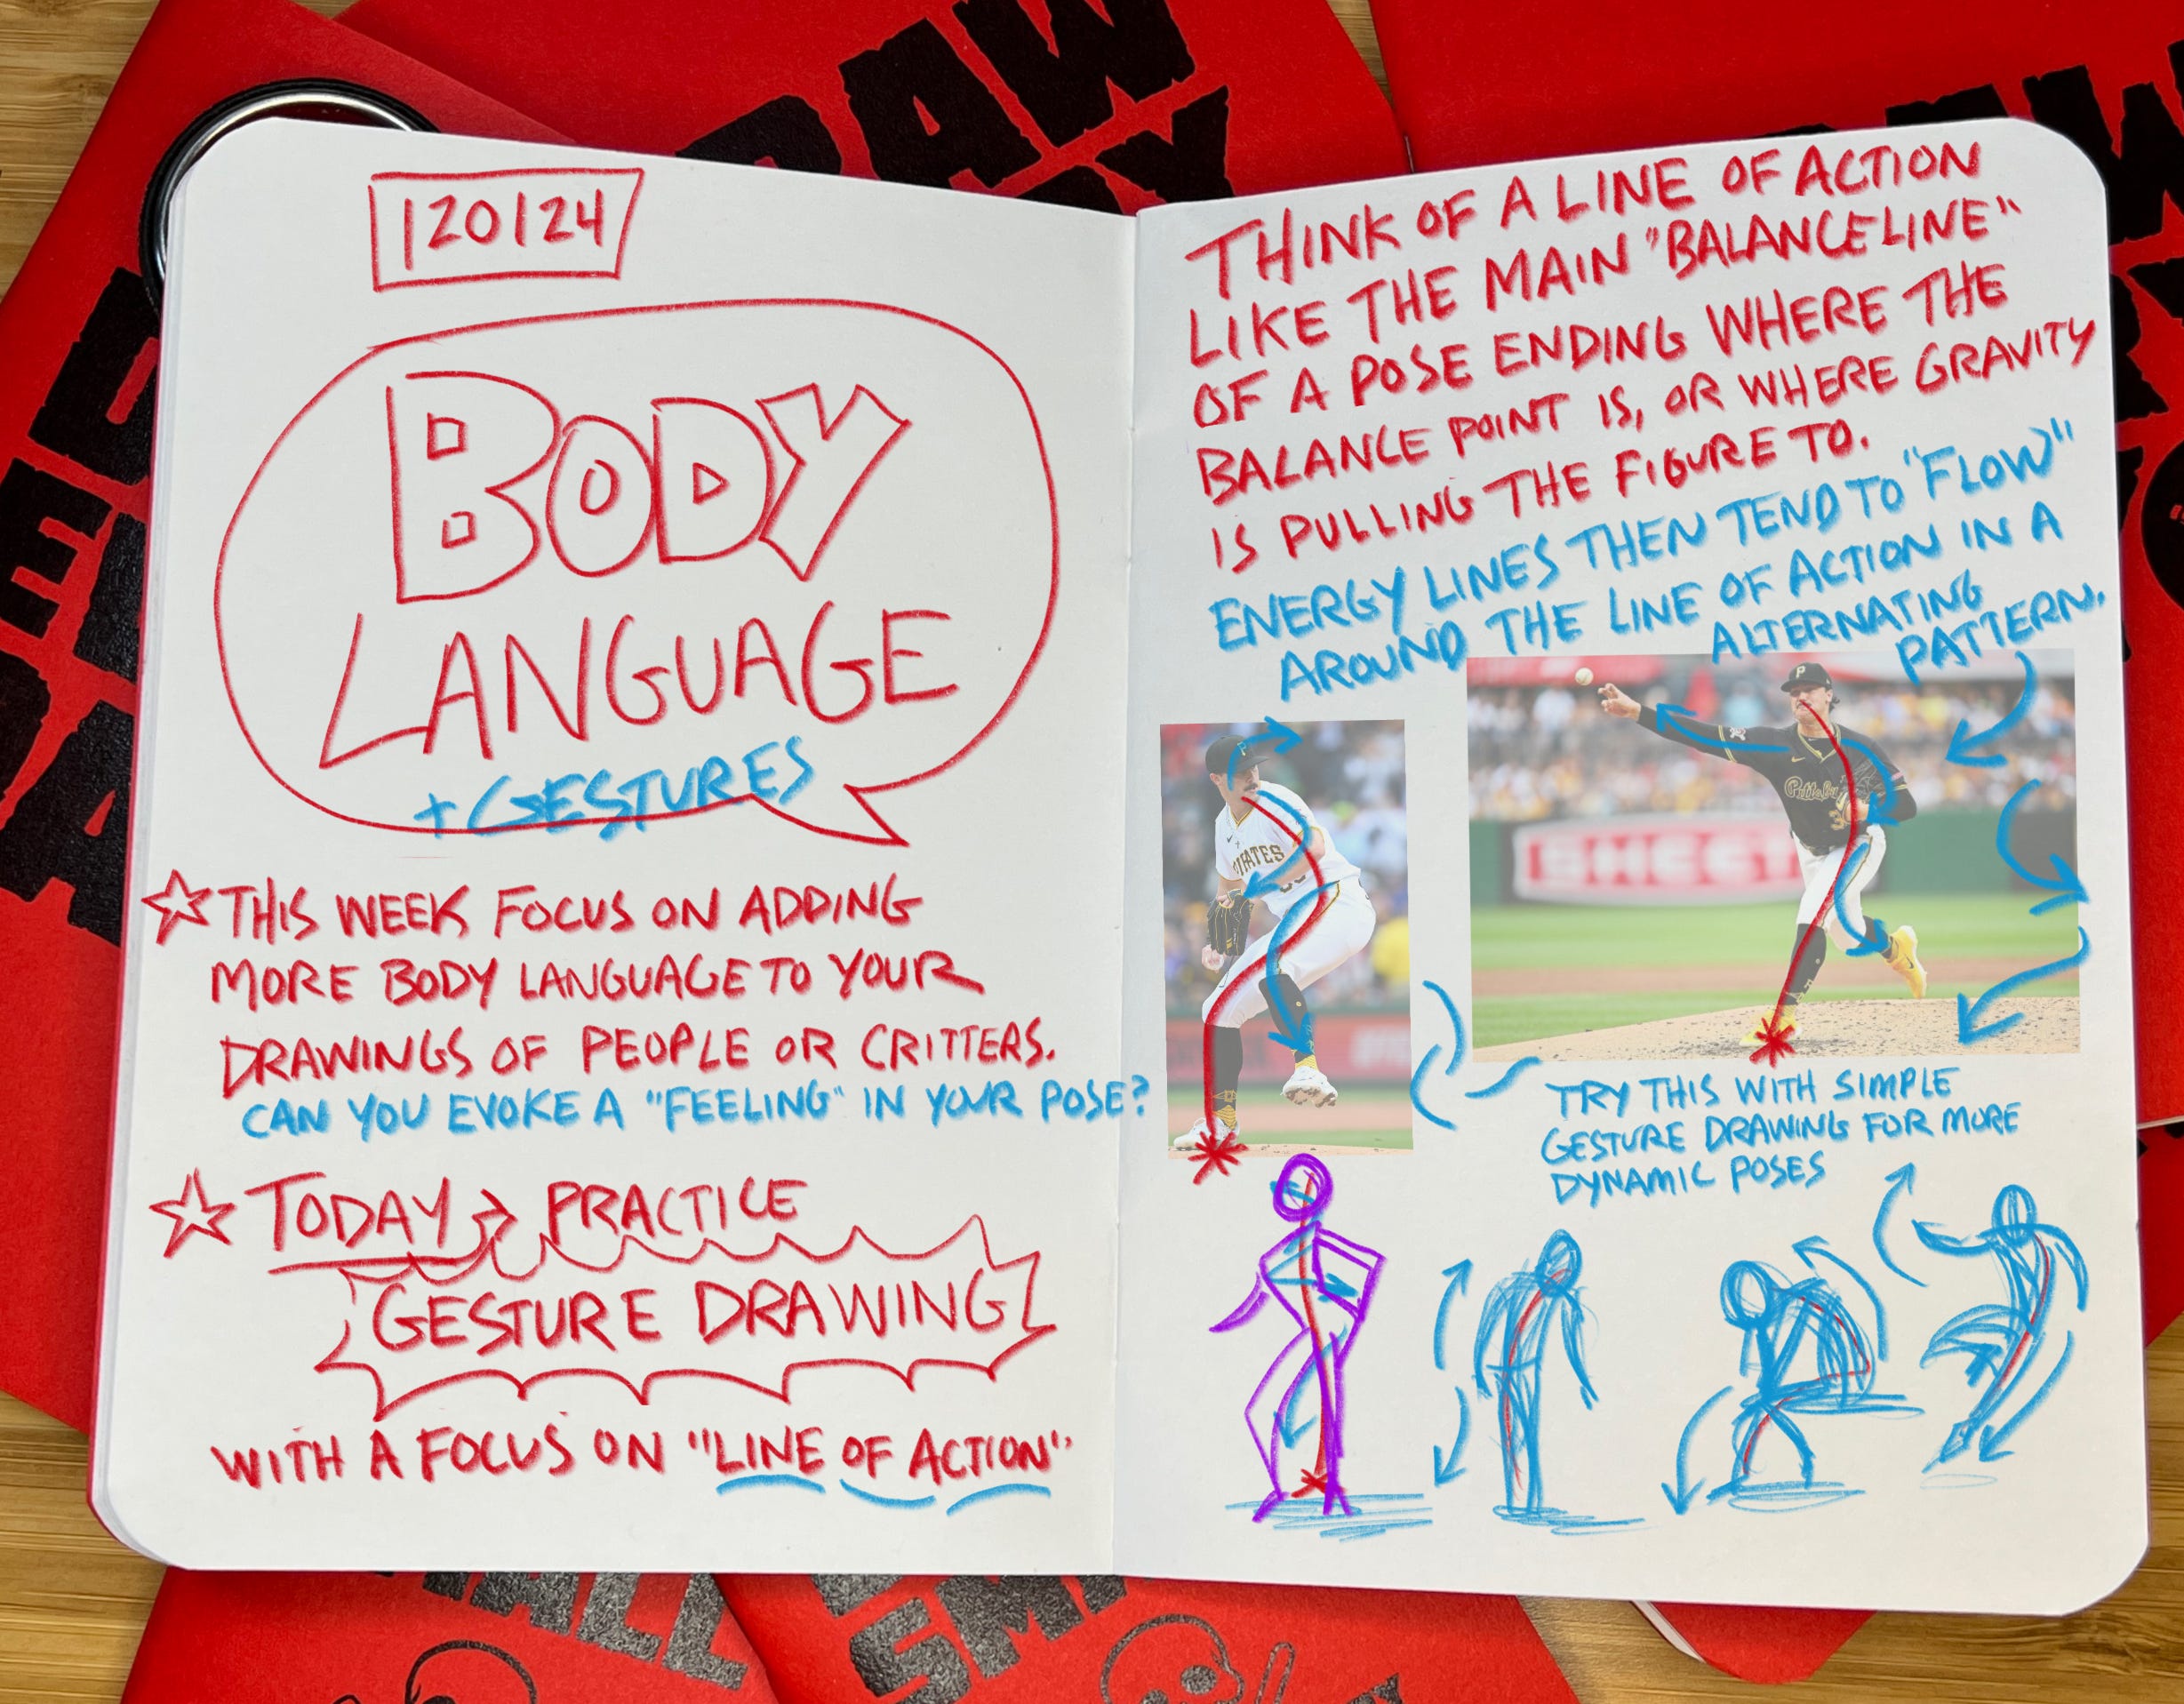 120124
BODY
LANGUAGE
+ GESTURES
THIS WEEK FOCUS ON ADDING
MORE BODY LANGUAGE TO YOUR
DRAWINGS OF PEOPLE OR CRITTERS.
CAN YOU EVOKE A "FEELING" IN YOUR POSE?
TODAY → PRACTICE
GESTURE DRAWING
WITH A FOCUS ON "LINE OF ACTION"
THINK OF A LINE OF ACTION
LIKE THE MAIN "BALANCE LINE"
OF A POSE ENDING WHERE THE
BALANCE POINT IS, OR WHERE GRAVITY
IS PULLING THE FIGURE TO.
ENERGY LINES THEN TEND TO "FLOW"
AROUND THE LINE OF ACTION IN A
ALTERNATING
PATTERN.
P
PIRATES
P
SHEET
TRY THIS WITH SIMPLE
GESTURE DRAWING FOR MORE
DYNAMIC POSES